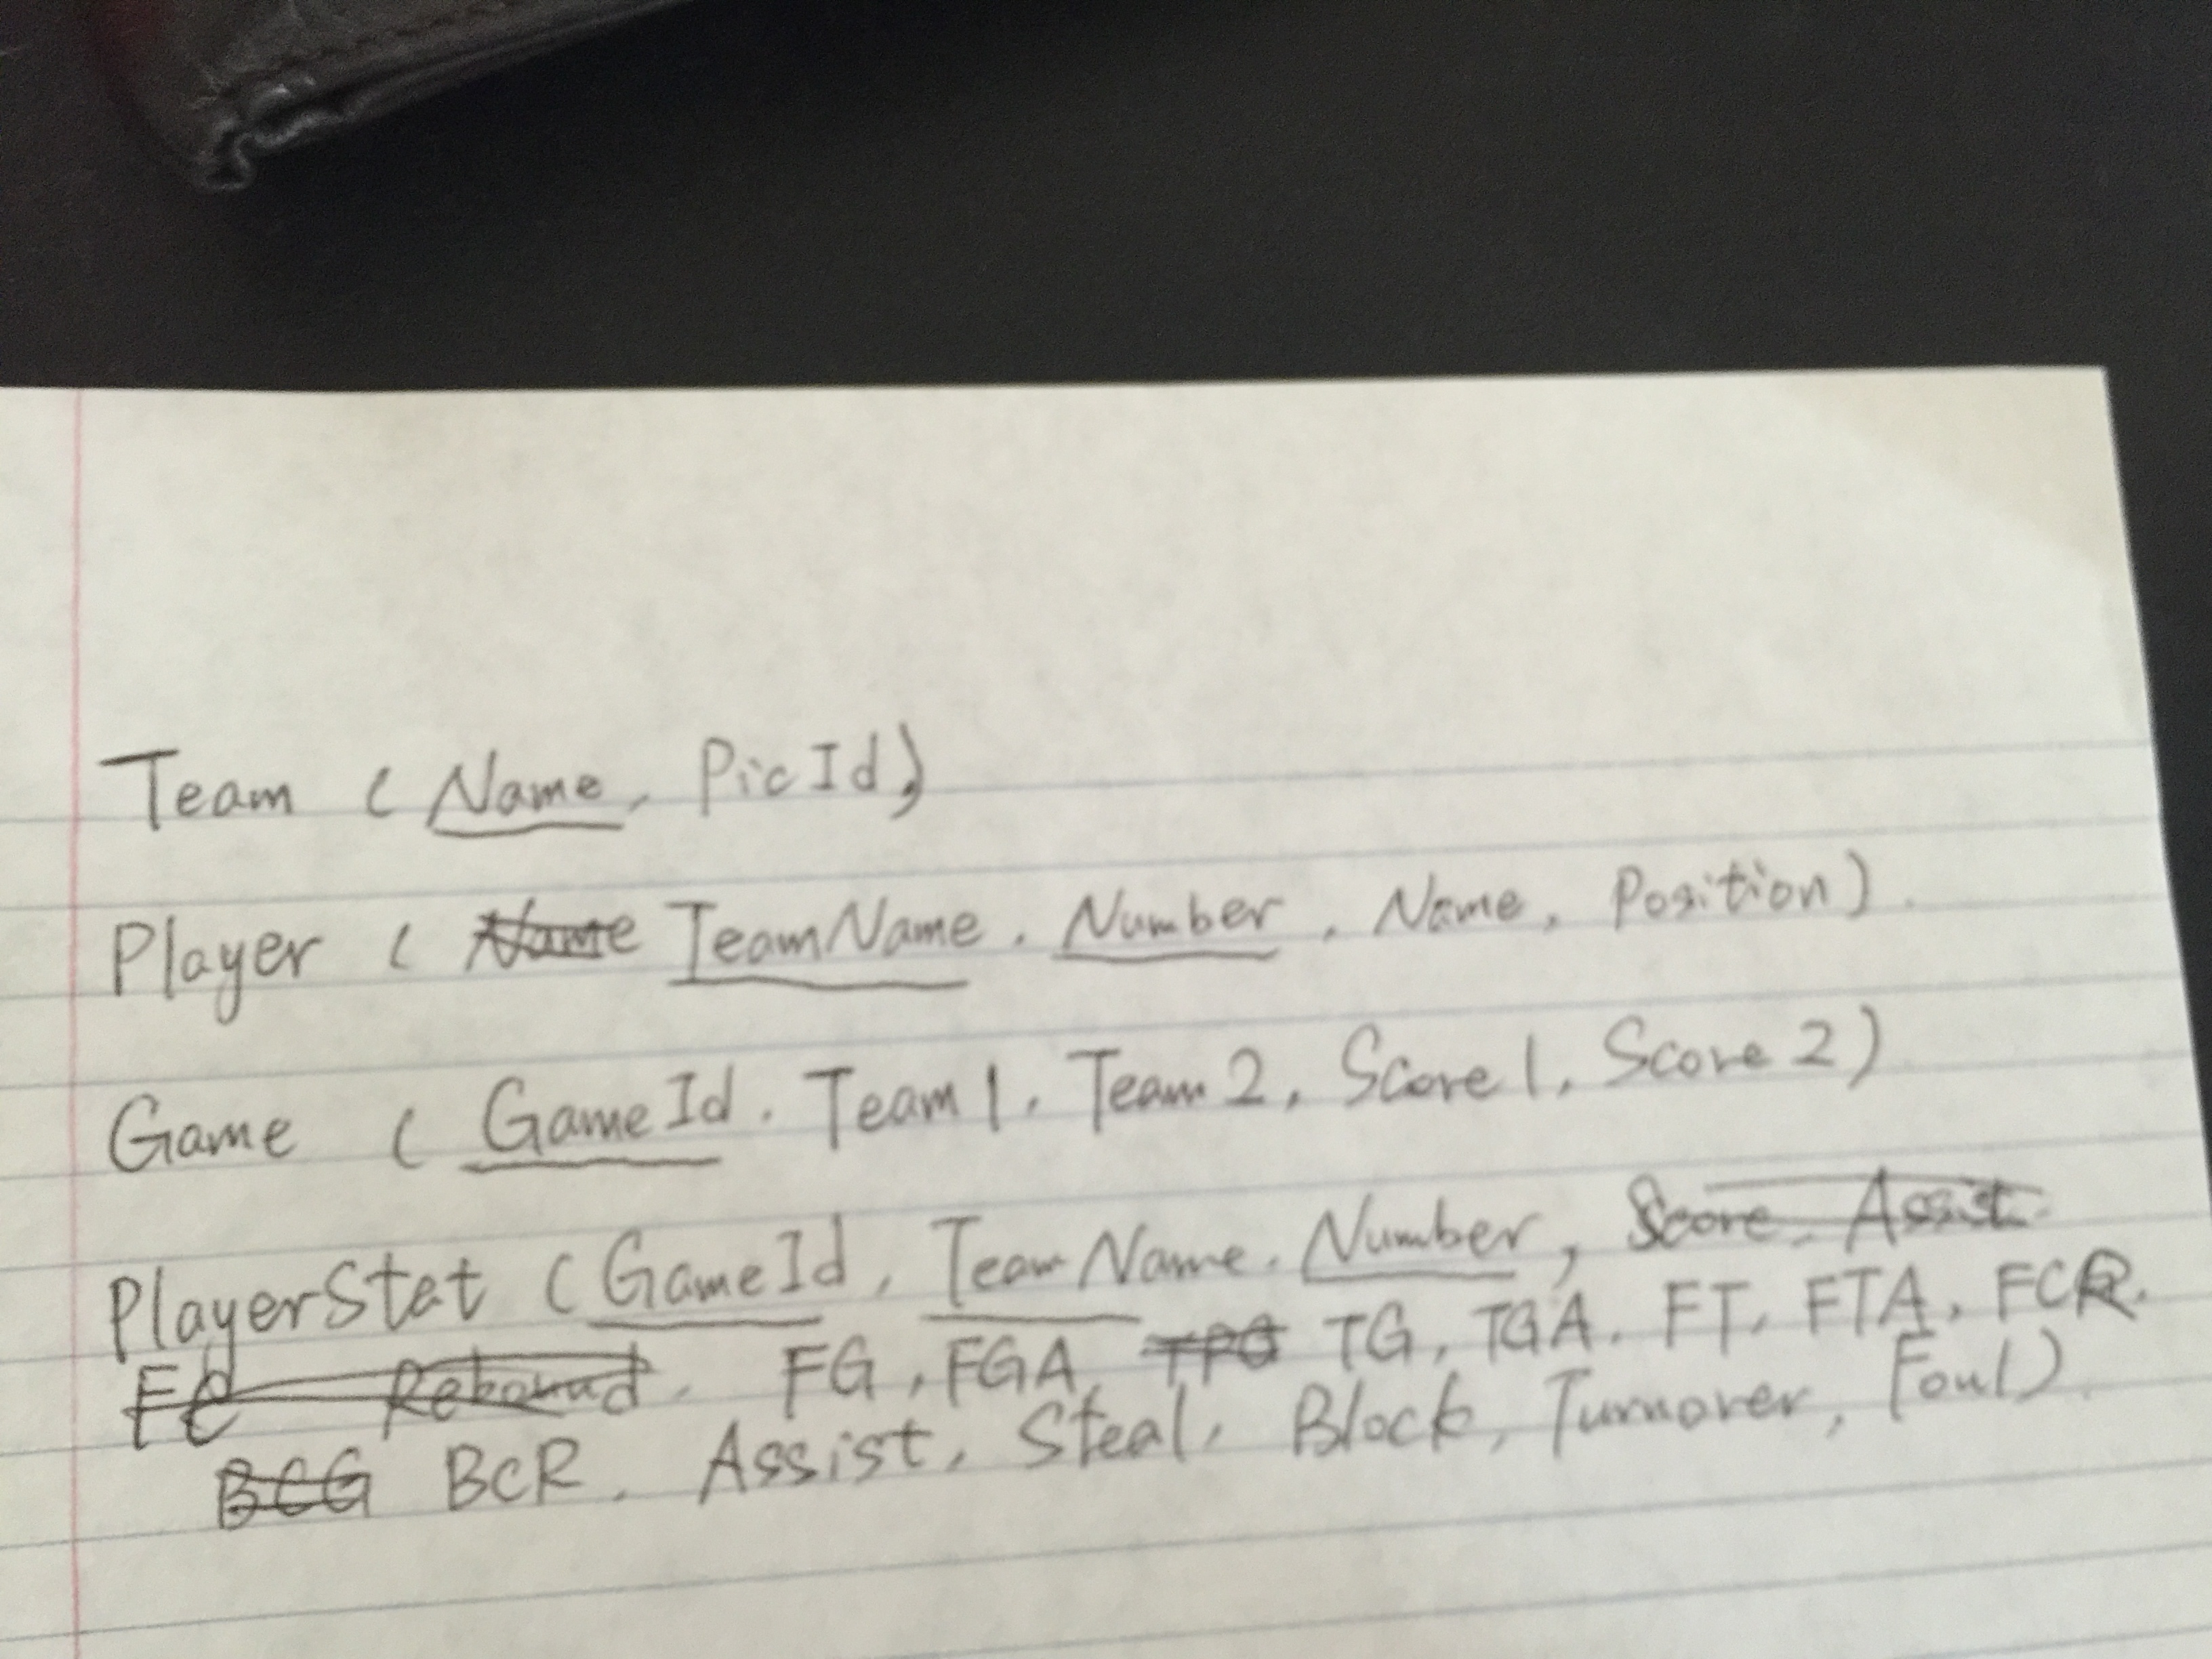 Team ( Name, PicId)
Player ( Name TeamName, Number, Name, Position).
Game ( GameId, Team1, Team2, Score1, Score2)
PlayerStat ( GameId, TeamName, Number, Score, Assist.
Rebound, FG, FGA TPG TG, TGA, FT, FTA, FCR.
BCR, Assist, Steal, Block, Turnover, Foul)